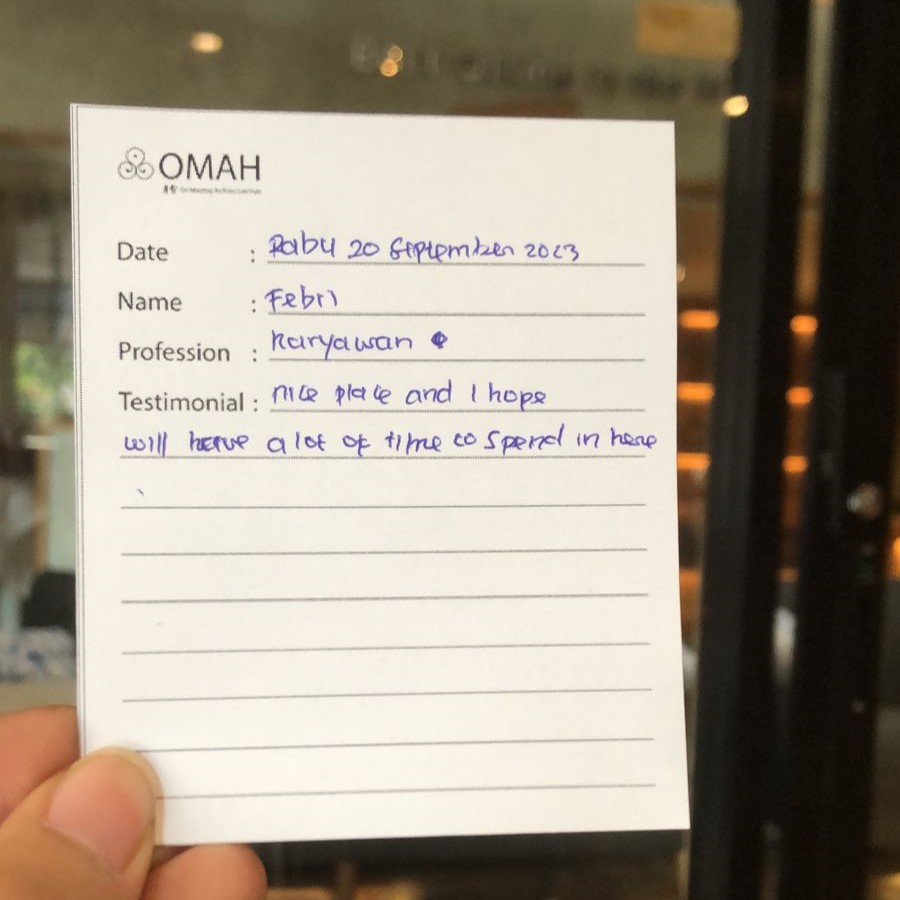 OMAH
Date : Rabu 20 September 2023
Name : Febri
Profession : Karyawan
Testimonial : nice place and I hope
will have a lot of time to spend in here